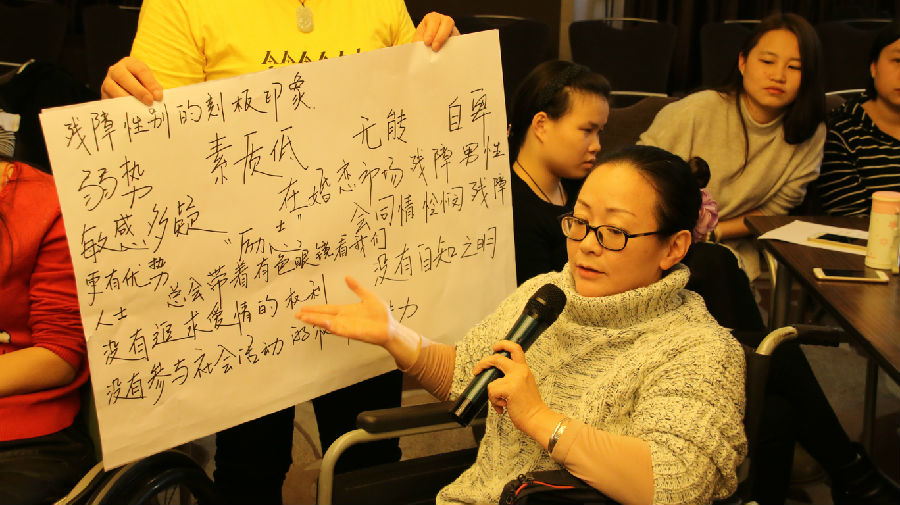 残障性别的刻板印象
弱势 素质低 无能 自卑
敏感多疑 在婚恋市场残障男性
更有优势 "励志" 会同情怜悯残障
人士 总会带着有色眼镜看我们
没有自知之明
没有追求爱情的权利
没有参与社会活动的 力